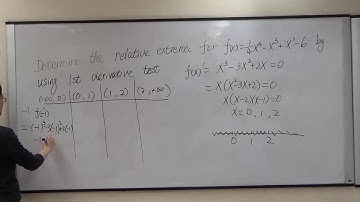 Determine the relative extrema for f(x)=¼x⁴-x³+x²-6 by
using 1st derivative test
(-∞, 0) (0, 1) (1, 2) (2, +∞)
-1 f(-1)
=(-1)³-3(-1)²+2(-1)
-1
f(x)'= x³-3x²+2x=0
= x(x²-3x+2)=0
x(x-2)(x-1)=0
x=0, 1, 2
0 1 2